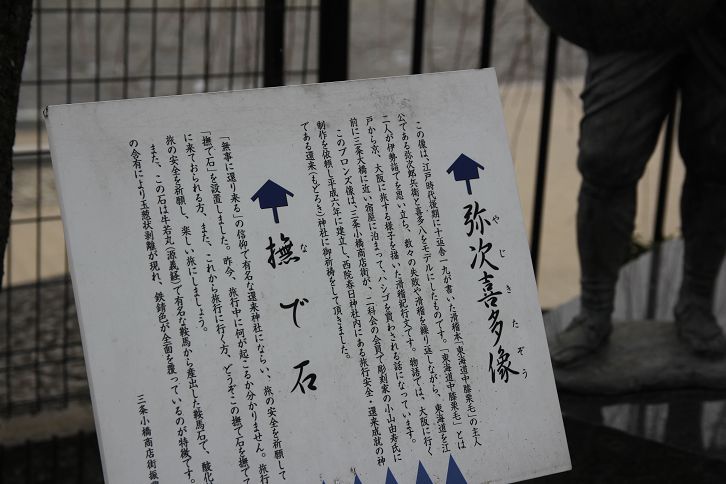 弥次喜多像
やじきたぞう
この像は、江戸時代後期に十返舎一九が書いた滑稽本「東海道中膝栗毛」の主人
公である弥次郎兵衛と喜多八をモデルにしたものです。「東海道中膝栗毛」とは
二人が伊勢詣でを思い立ち、数々の失敗や滑稽を繰り返しながら、東海道を江
戸から京、大阪に旅する様子を描いた滑稽紀行文です。物語では、大阪に行く
前に三条大橋に近い宿屋に泊まって、ハシゴを買わされる話になっています。
このブロンズ像は、三条小橋商店街が、二科会の会員で彫刻家の小山由寿氏に
制作を依頼し平成六年に建立し、西院春日神社内にある旅行安全・還来成就の神
である還来(もどろき)神社に御祈祷をして頂きました。
撫で石
な
「無事に還り来る」の信仰で有名な還来神社にならい、旅の安全を祈願して
「撫で石」を設置しました。昨今、旅行中に何が起こるか分かりません。旅行
に来ておられる方、また、これから旅行に行く方、どうぞこの撫で石を撫で
旅の安全を祈願し、楽しい旅にしましょう。
また、この石は牛若丸(源義経)で有名な鞍馬から産出した鞍馬石で、酸化
の含有により玉葱状剥離が現れ、鉄錆色が全面を覆っているのが特徴です。
三条小橋商店街振